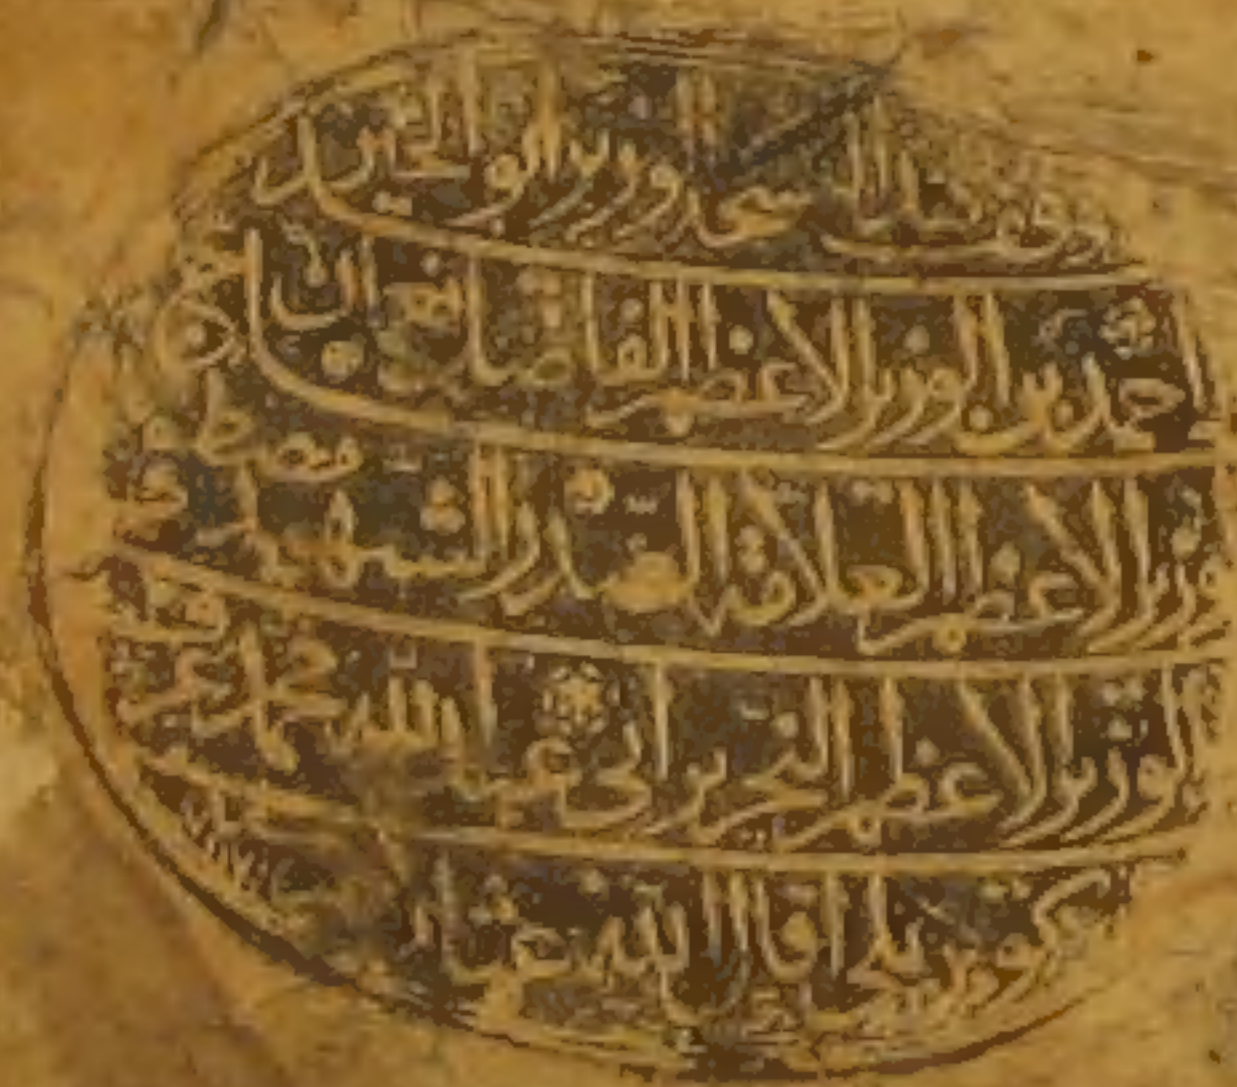 وزير ابو الخير
احمد بن الوزير الاعظم الفاضل نعمان بن
الوزير الاعظم العلامة الصدر الشهيد مصطفى
الوزير الاعظم النحرير ابي عبد الله محمد عرف
كوپريلى اقال الله عثار